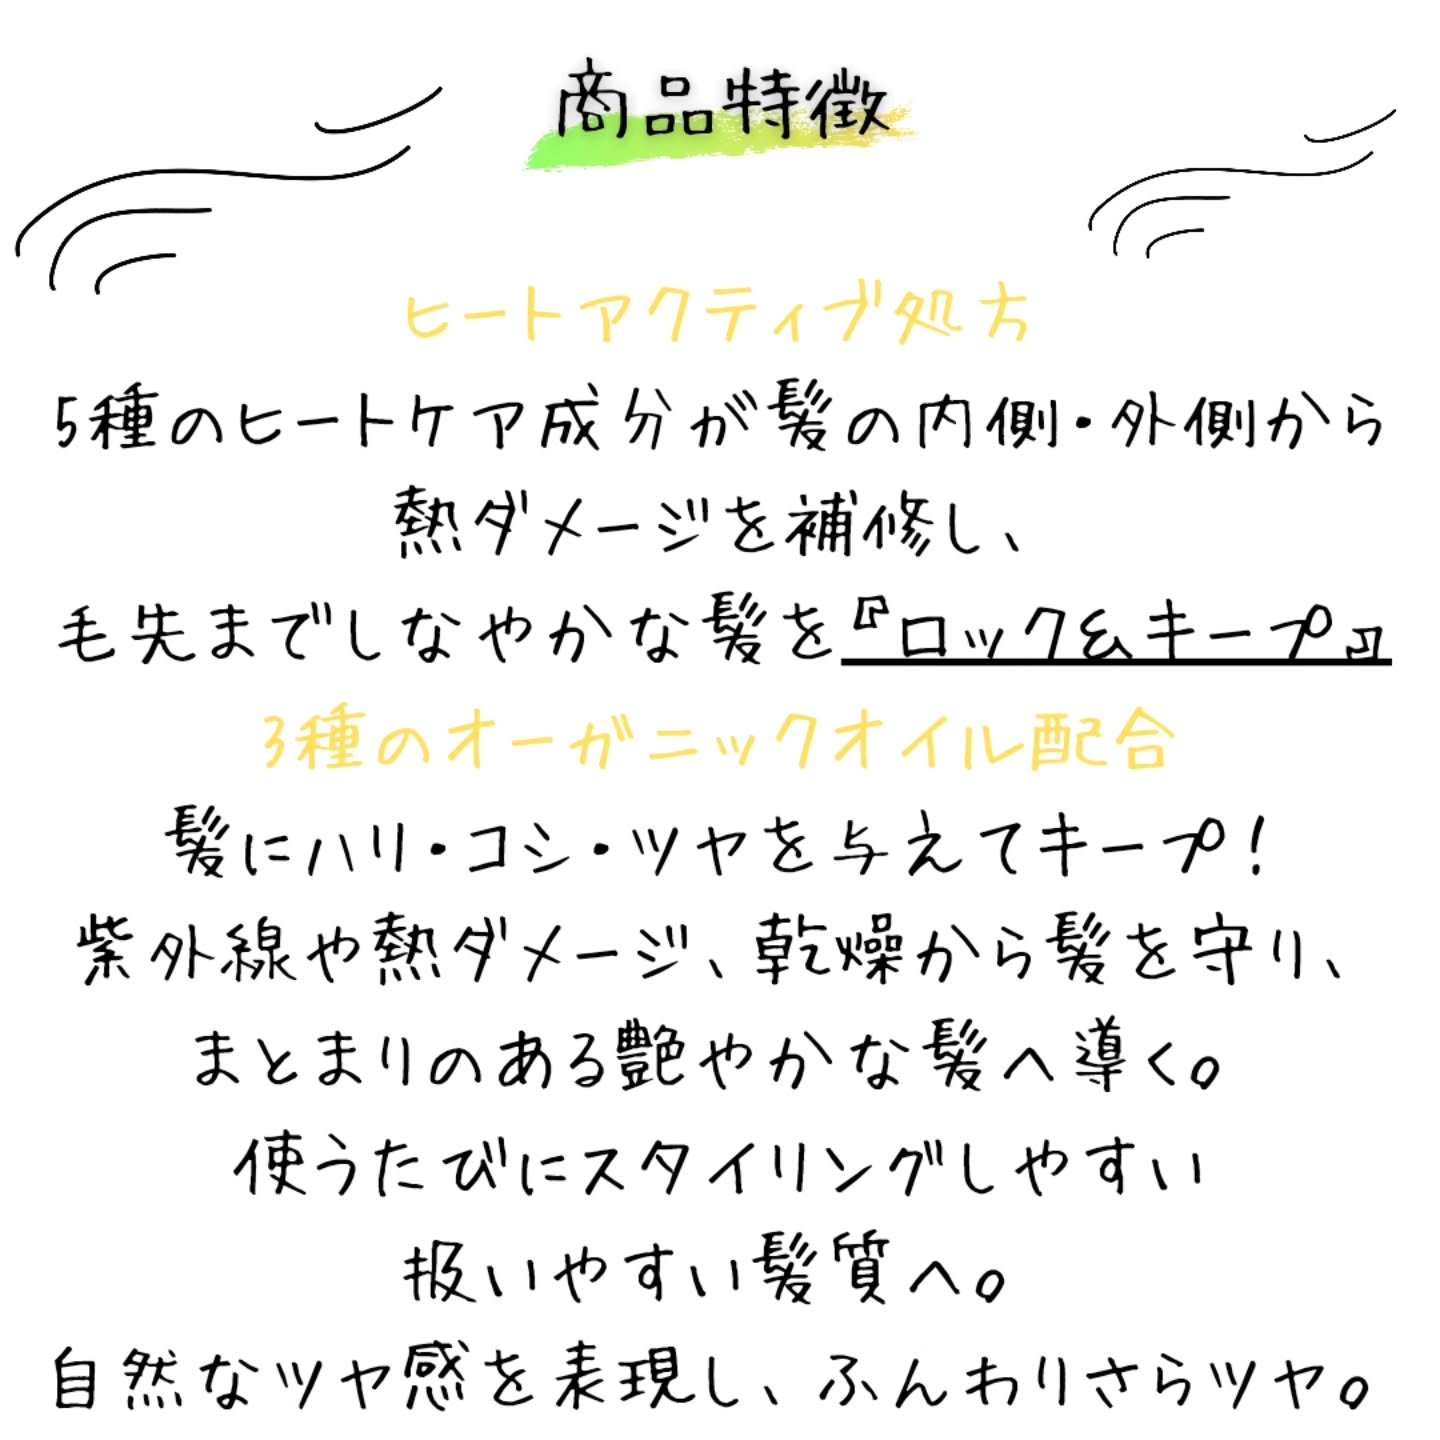 商品特徴
ヒートアクティブ処方
5種のヒートケア成分が髪の内側・外側から
熱ダメージを補修し、
毛先までしなやかな髪を『ロック&キープ』
3種のオーガニックオイル配合
髪にハリ・コシ・ツヤを与えてキープ!
紫外線や熱ダメージ、乾燥から髪を守り、
まとまりのある艶やかな髪へ導く。
使うたびにスタイリングしやすい
扱いやすい髪質へ。
自然なツヤ感を表現し、ふんわりさらツヤ。